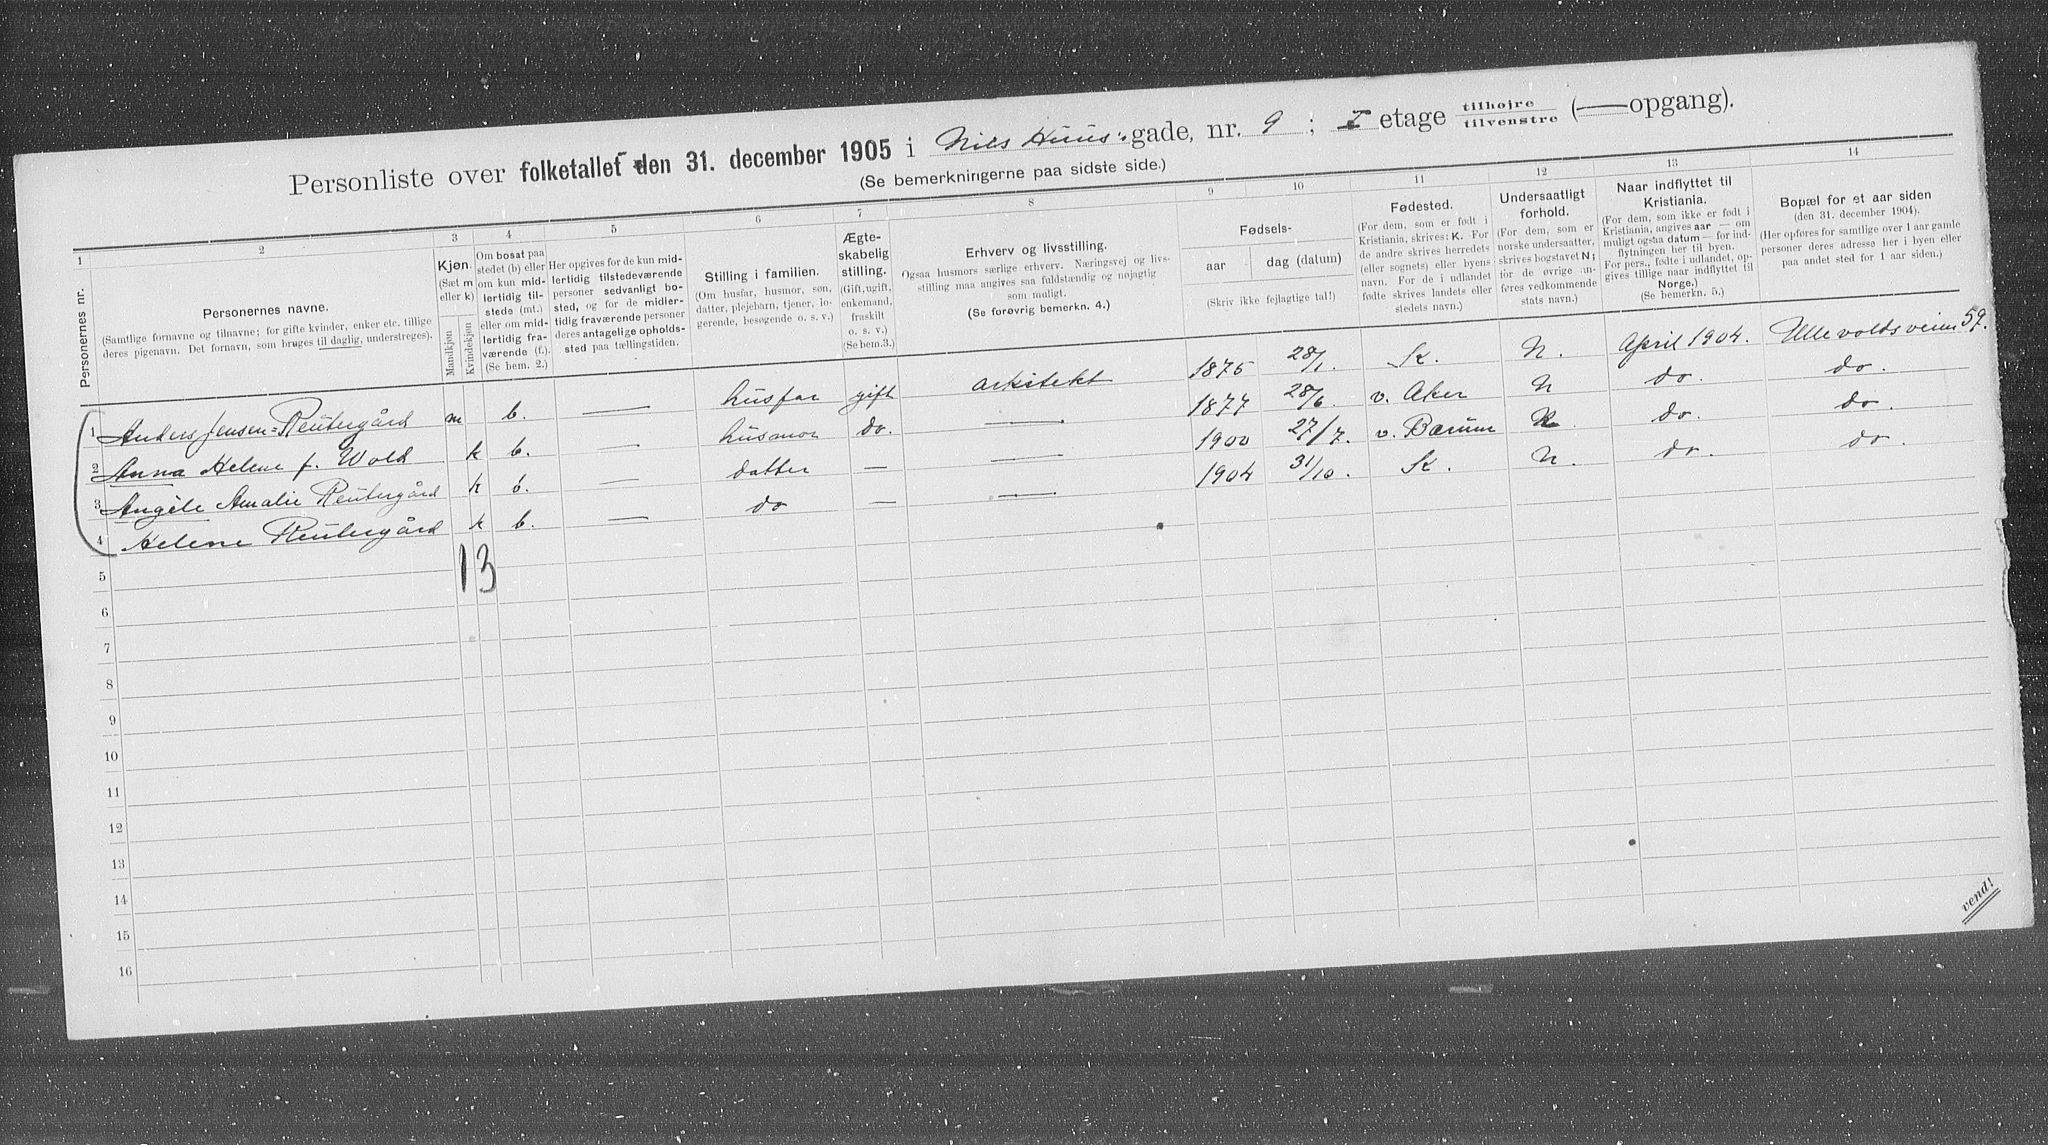 Personliste over folketallet den 31. december 1905 i Nils Huus' gade, nr. 9 ; I etage tilhøjre tilvenstre (— opgang).
(Se bemerkningerne paa sidste side.)
1 2 3 4 5 6 7 8 9 10 11 12 13 14
Personernes nr.
Personernes navne.
(Samtlige fornavne og tilnavne; for gifte kvinder, enker etc. tillige
deres pigenavn. Det fornavn, som bruges til daglig, understreges).
Kjøn.
(Sæt m
eller k)
Mandkjøn
Kvindekjøn
Om bosat paa
stedet (b) eller
om kun mid-
lertidig til-
stede (mt.)
eller om mid-
lertidig fra-
værende (f.).
(Se bem. 2.)
Her opgives for de kun mid-
lertidig tilstedeværende
personer sedvanligt bo-
sted, og for de midler-
tidig fraværende personer
deres antagelige opholds-
sted paa tællingstiden.
Stilling i familien.
(Om husfar, husmor, søn,
datter, plejebarn, tjener, lo-
gerende, besøgende o. s. v.)
Ægte-
skabelig
stilling.
(Gift, ugift,
enkemand,
fraskilt
o. s. v.)
(Se bem.3.)
Erhverv og livsstilling.
Ogsaa husmors særlige erhverv. Næringsvej og livs-
stilling maa angives saa fuldstændig og nøjagtig
som muligt.
(Se forøvrig bemerkn. 4.)
Fødsels-
aar
dag (datum)
(Skriv ikke fejlagtige tal!)
Fødested.
(For dem, som er født i
Kristiania, skrives: K. For
de andre skrives herredets
(eller sognets) eller byens
navn. For de i udlandet
fødte skrives landets eller
stedets navn.)
Undersaatligt
forhold.
(For dem, som er
norske undersaatter,
skrives bogstavet N;
for de øvrige an-
føres vedkommende
stats navn.)
Naar indflyttet til
Kristiania.
(For dem, som ikke er født i
Kristiania, angives aar — om
muligt ogsaa datum — for ind-
flytningen her til byen.
For pers., fødte i udlandet, op-
gives tillige naar indflyttet til
Norge.)
(Se bemerkn. 5.)
Bopæl for et aar siden
(den 31. december 1904).
(Her opføres for samtlige over 1 aar gamle
personer deres adresse her i byen eller
paa andet sted for 1 aar siden.)
1 Anders Jensen=Reutergård m b. — husfar gift arkitekt 1875 28/1. K. N. April 1904. Ullevoldsveien 59.
2 Anna Helene f. Wold k b. — husmor do. — 1877 28/6 v. Aker N do. do.
3 Angèle Amalie Reutergård k b. — datter — — 1900 27/7. v. Bærum N. do. do.
4 Helene Reutergård k b. — do — — 1904 31/10. K. N. do. do.
13
5
6
7
8
9
10
11
12
13
14
15
16
vend!